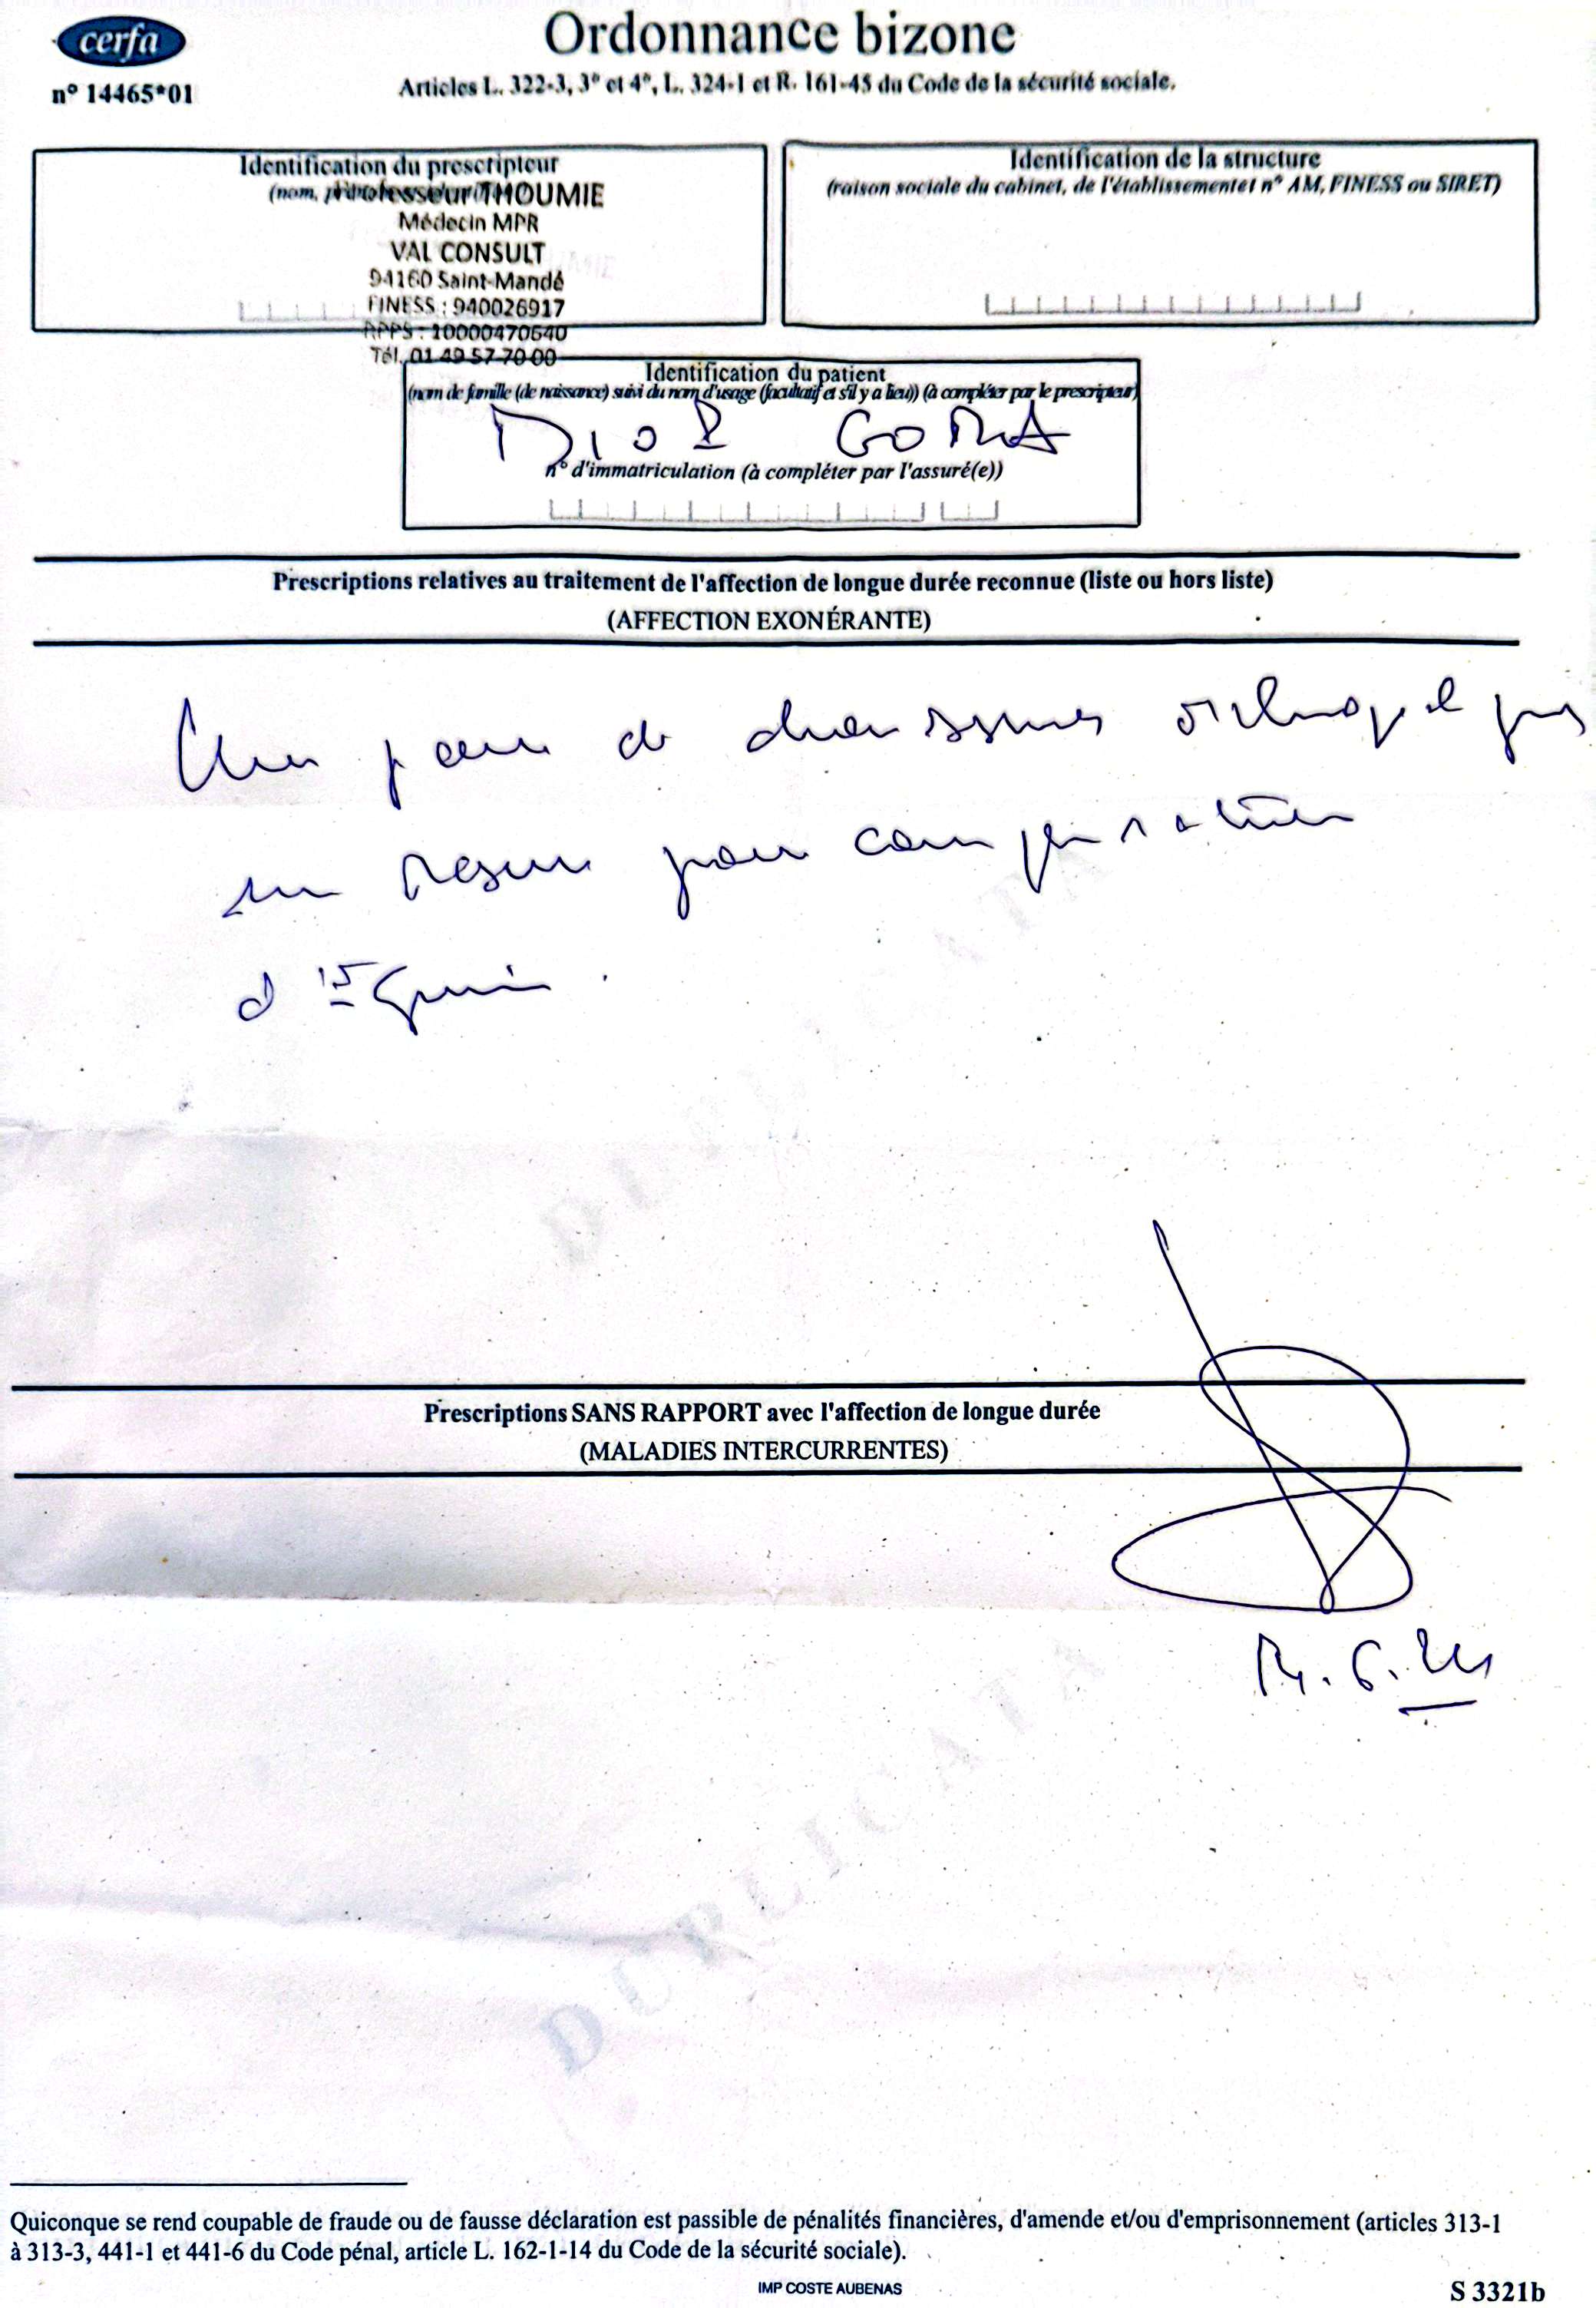 cerfa
n° 14465*01
Ordonnance bizone
Articles L. 322-3, 3° et 4°, L. 324-1 et R. 161-45 du Code de la sécurité sociale.
Identification du prescripteur
(nom, Professeur THOUMIE
Médecin MPR
VAL CONSULT
94160 Saint-Mandé
FINESS : 940026917
RPPS : 10000470640
Tél. 01 49 57 70 00
Identification de la structure
(raison sociale du cabinet, de l'établissementet n° AM, FINESS ou SIRET)
Identification du patient
(nom de famille (de naissance) suivi du nom d'usage (facultatif et s'il y a lieu)) (à compléter par le prescripteur)
DIOP GORA
n° d'immatriculation (à compléter par l'assuré(e))
Prescriptions relatives au traitement de l'affection de longue durée reconnue (liste ou hors liste)
(AFFECTION EXONÉRANTE)
Une paire de chaussures orthopédiques
sur mesure pour compensation
d'équin.
DUPLICATA
Prescriptions SANS RAPPORT avec l'affection de longue durée
(MALADIES INTERCURRENTES)
6.24
DUPLICATA
Quiconque se rend coupable de fraude ou de fausse déclaration est passible de pénalités financières, d'amende et/ou d'emprisonnement (articles 313-1
à 313-3, 441-1 et 441-6 du Code pénal, article L. 162-1-14 du Code de la sécurité sociale).
IMP COSTE AUBENAS
S 3321b